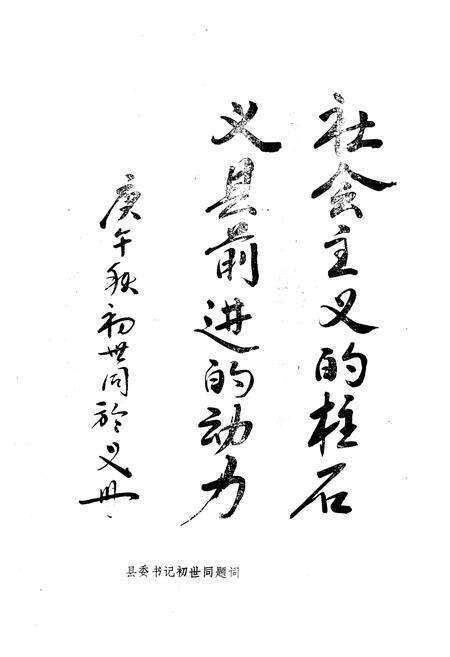 社会主义的柱石
义县前进的动力
庚午秋初世同於义州
县委书记初世同题词